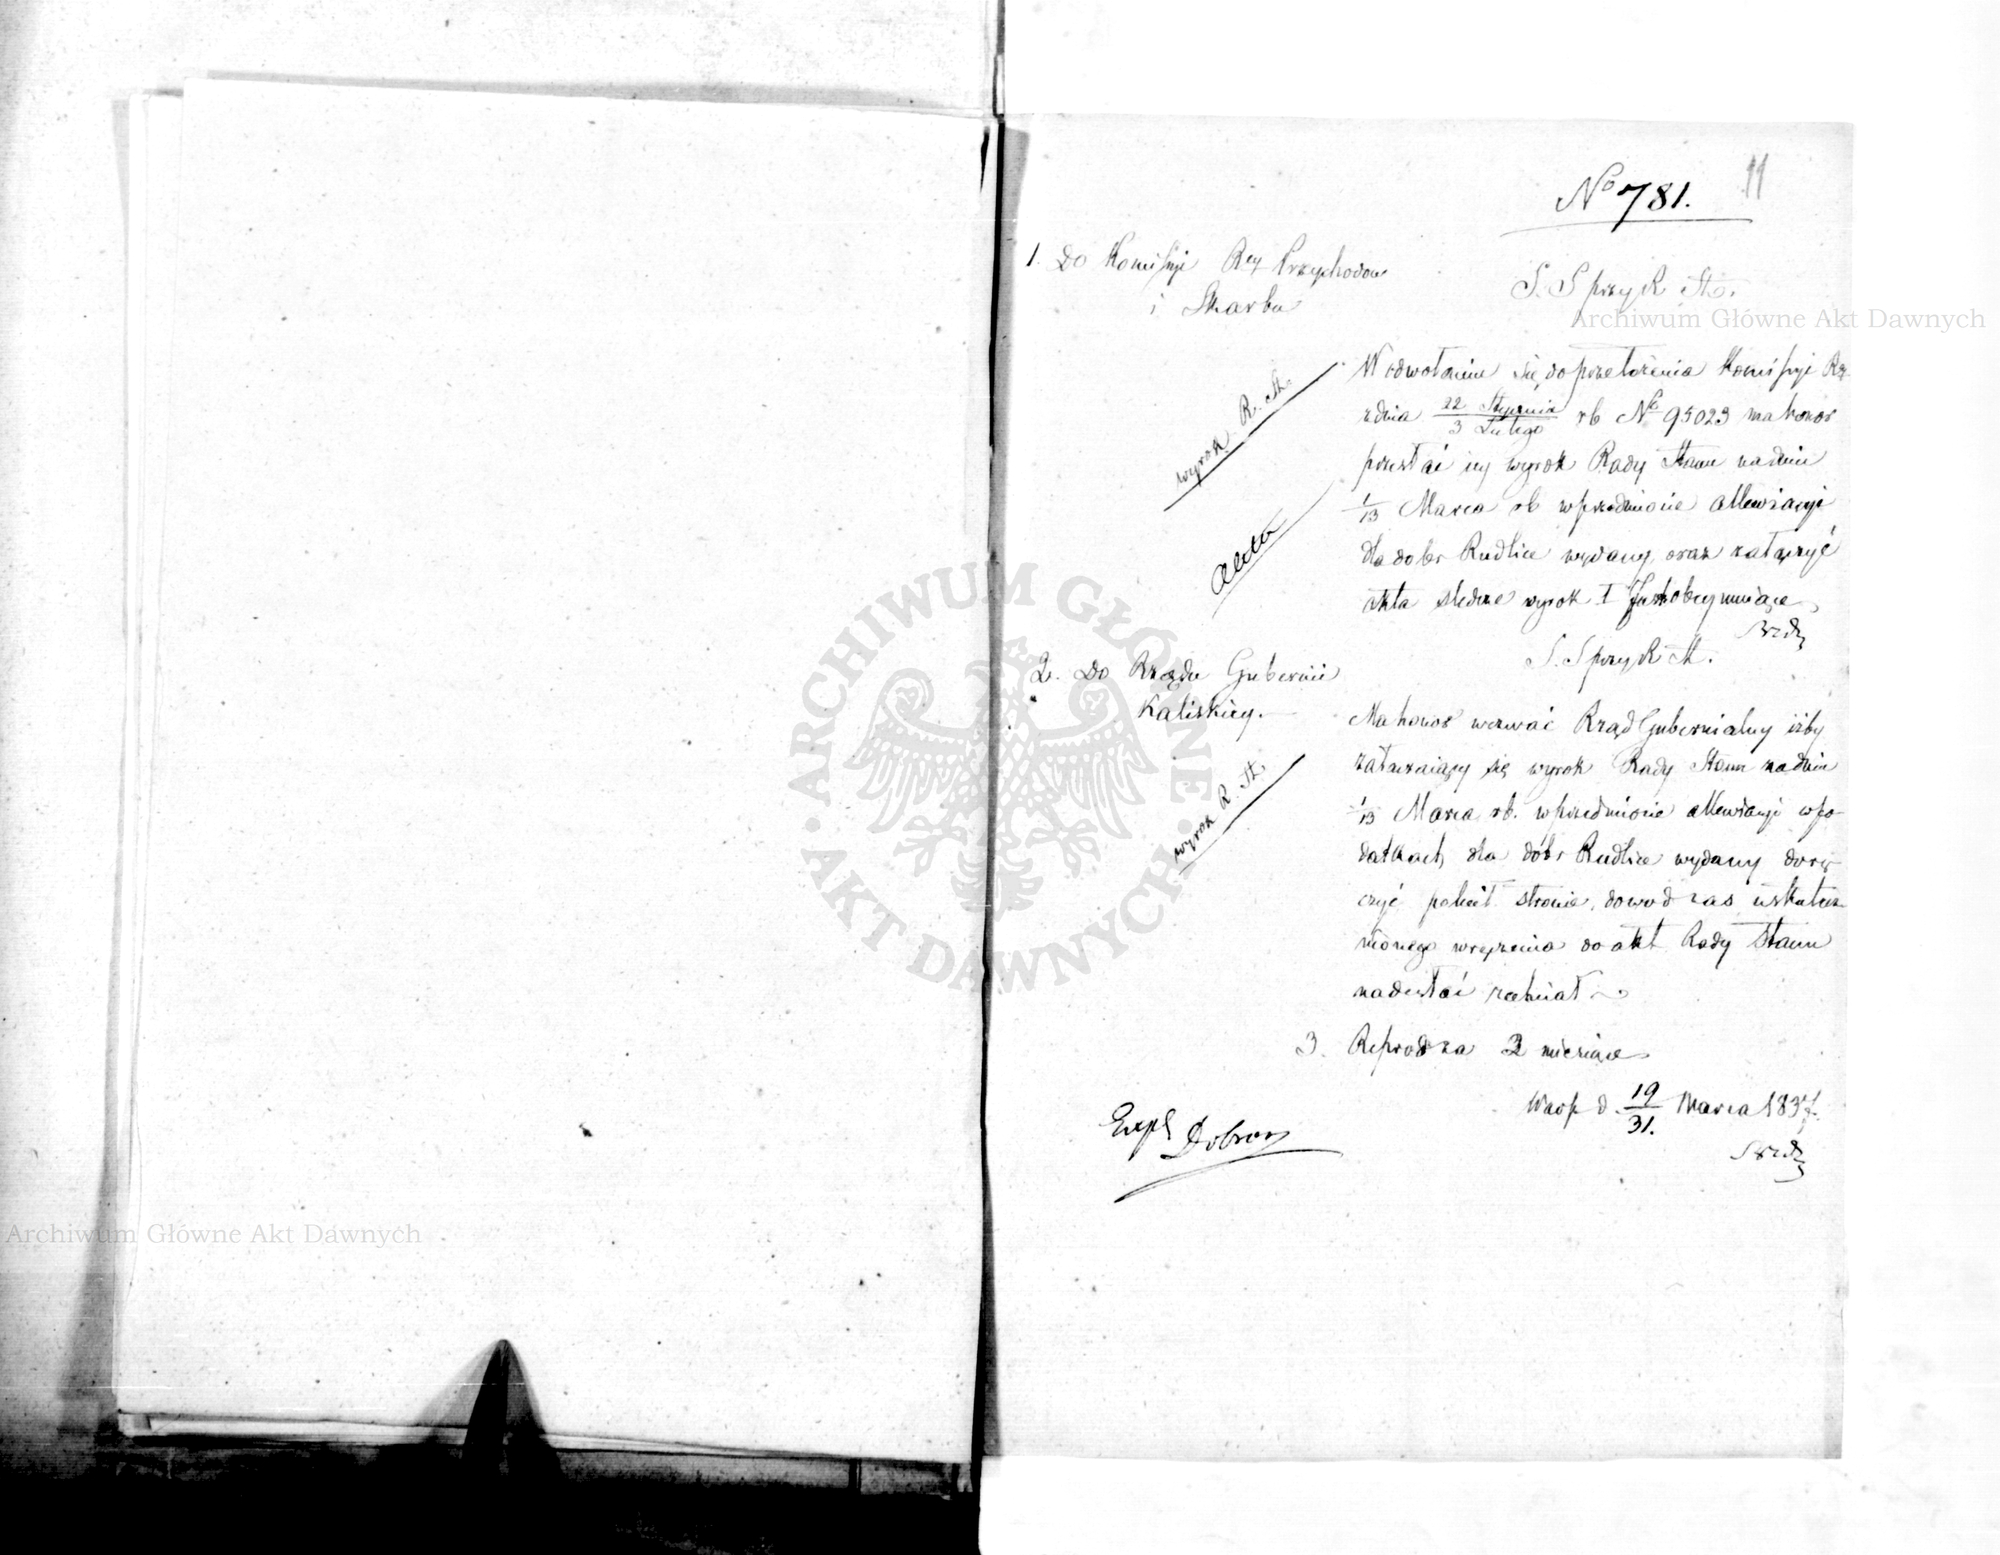 11
No 781.
1. Do Komissyi Rz Przychodow
i Skarbu
S. S przy R St.
W odwołaniu się do przełożenia Komissyi Rz
z dnia 22 Stycznia / 3 Lutego rb No 95023 ma honor
przesłać jey wyrok Rady Stanu na dniu
1/13 Marca rb w przedmiocie allewiacyi
dla dobr Rudlice wydany, oraz załączyć
akta śledcze wyrok I
wyrok R. St.
akta
S. S przy R St.
2. Do Rządu Gubernii
Kaliskiey.
Ma honor wezwać Rząd Gubernialny iżby
załączaiący się wyrok Rady Stanu na dniu
1/13 Marca rb. w przedmiocie allewiacyi w po-
datkach dla dóbr Rudlice wydany dorę-
czyć polecił stronie, dowod zas uskutecz-
nionego wręczenia do akt Rady Stanu
nadesłać zechciał
wyrok R. St.
3. Reprod za 2 miesiące
Warsz d. 19/31. Marca 1837.
Expl Dobrow
Archiwum Główne Akt Dawnych
Archiwum Główne Akt Dawnych
ARCHIWUM GŁÓWNE
· AKT DAWNYCH ·